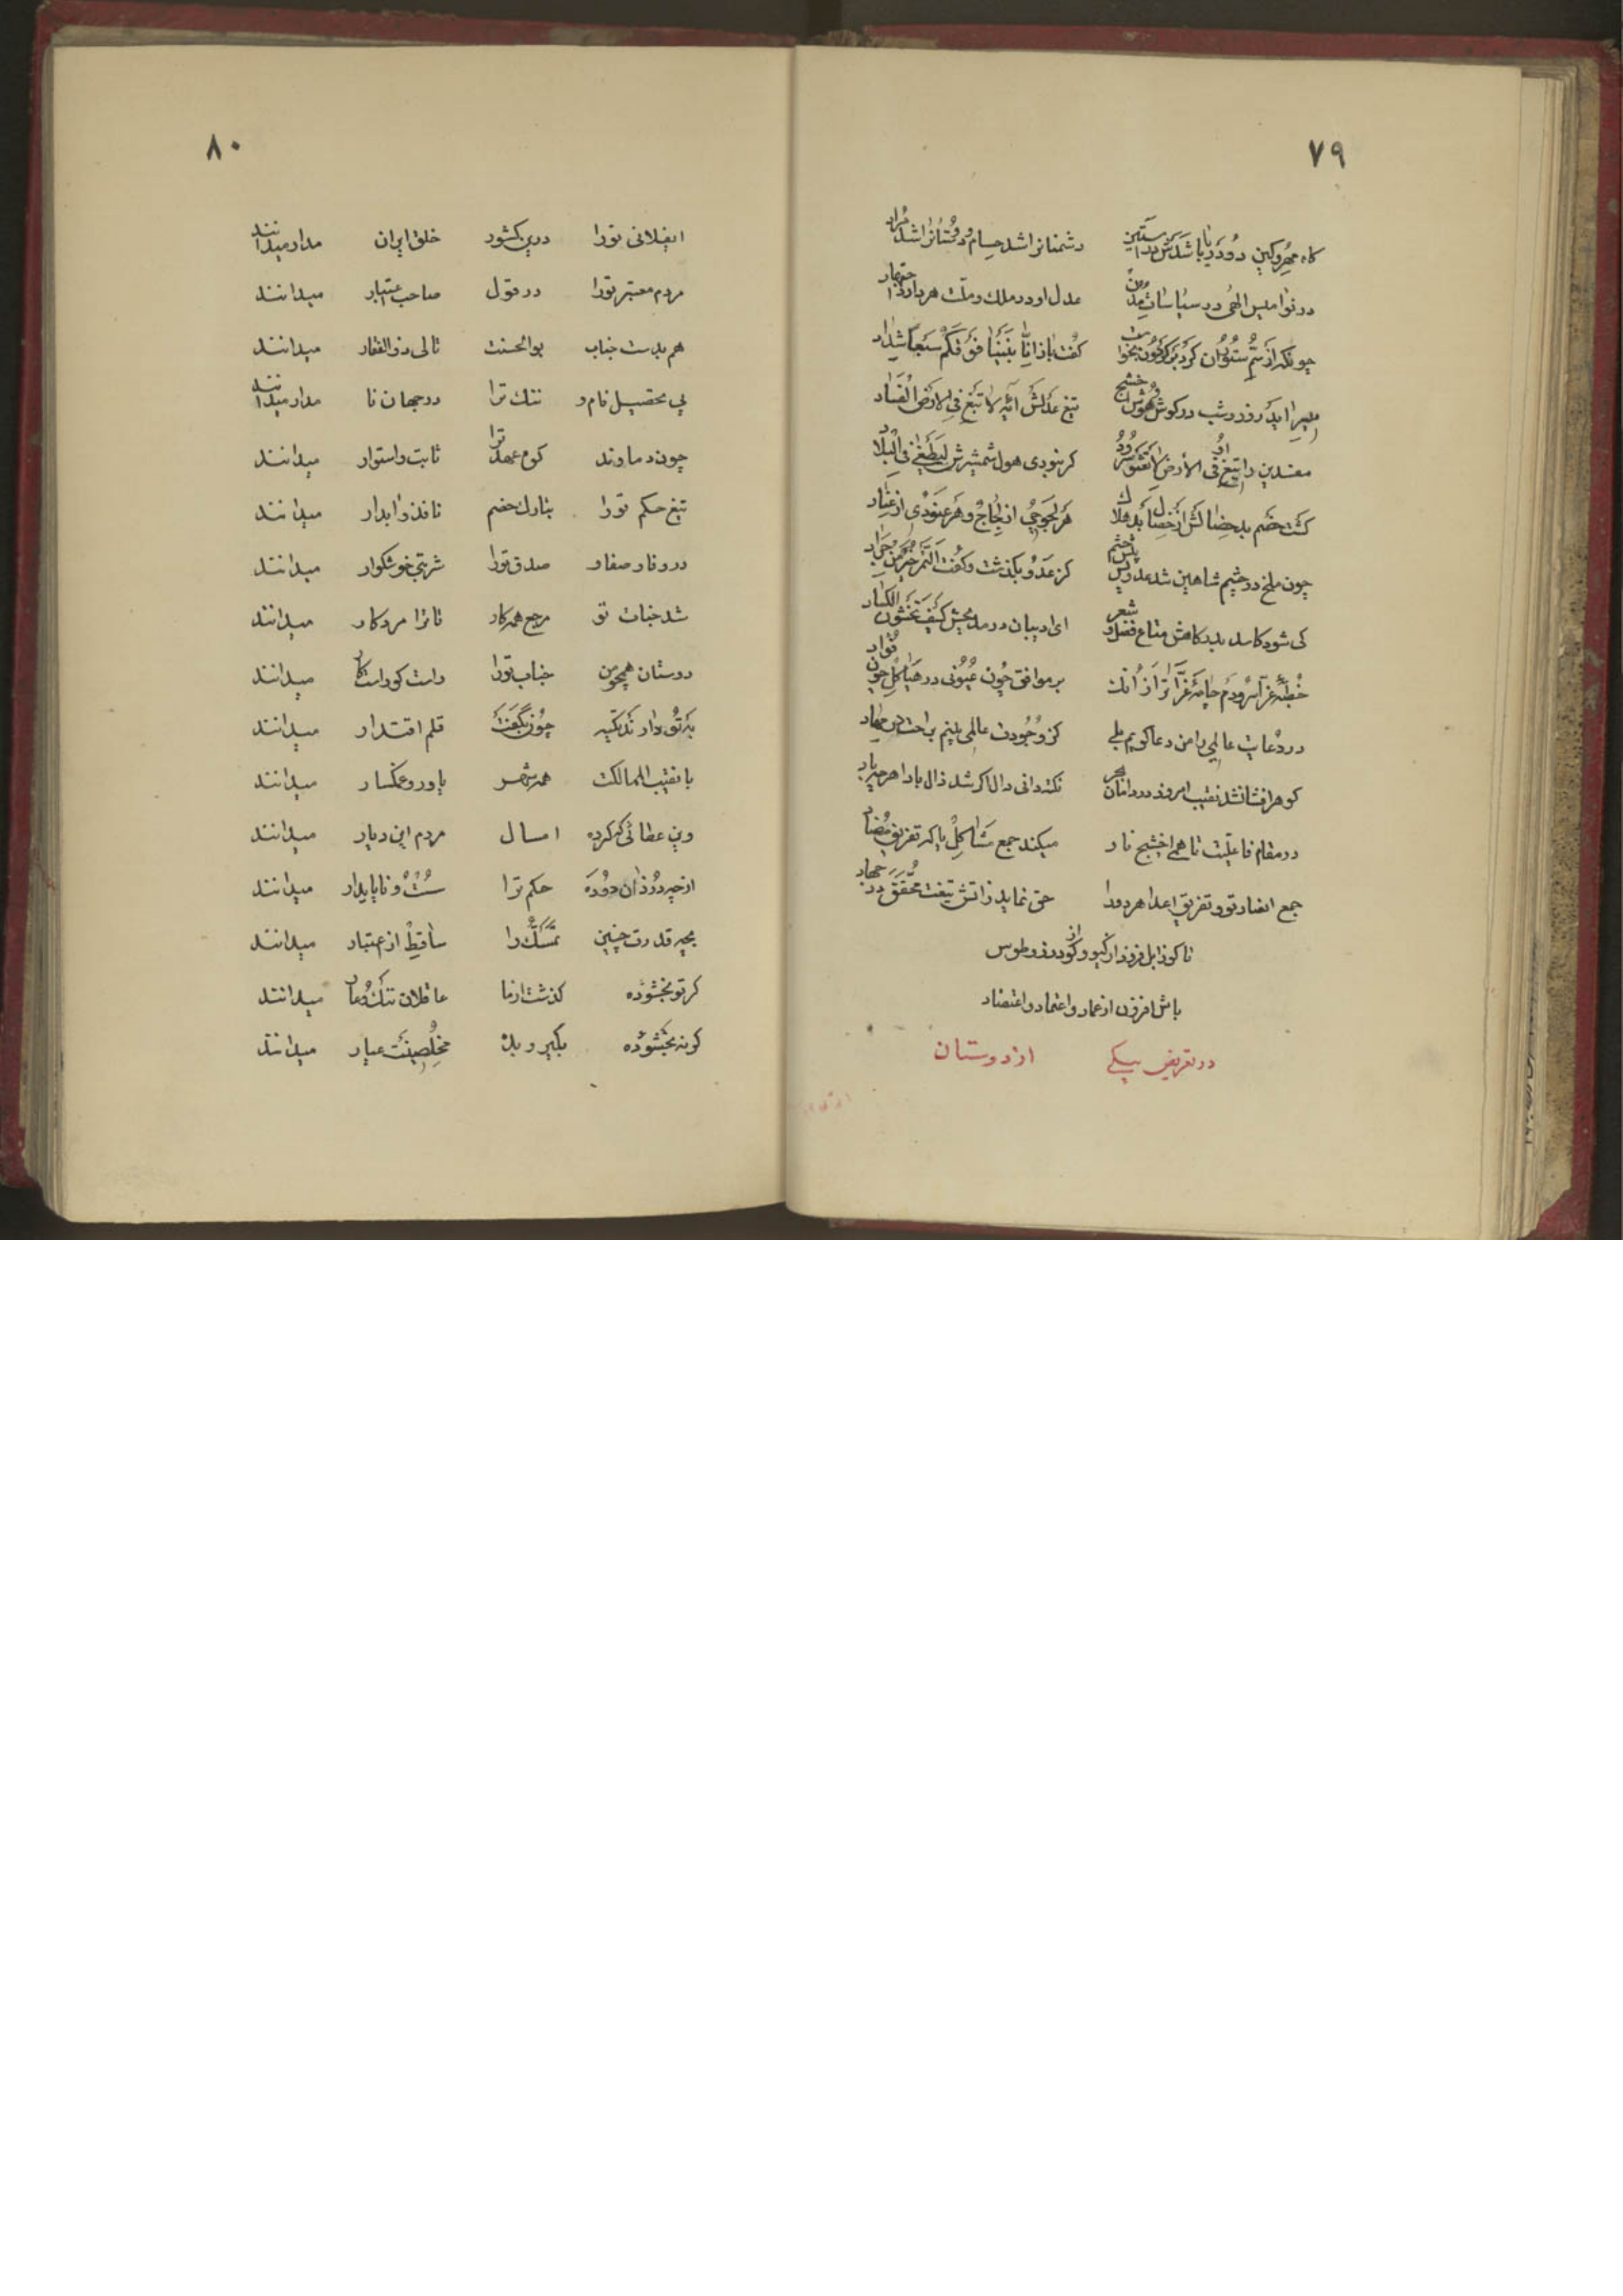 ٧٩
کاه مهر و کین دو دریا باشدش در آستین دشمنانرا شد حسام و دوستانرا شد مراد
در نوامیس الهی در سیاسات مدن عدل او در ملك و ملت هر دو را
چونکه از ستم ستوران کرد بر کردون گفت باز انا بنینا فوقکم سبعا شداد
روز و شب در کوش هوش تیغ عدلش آیه لا تبغ فی الارض الفساد
مفسدین را تیغ او فی الارض لا تعثوا سرود کر نبودی هول شمشیرش لیطغی فی البلاد
کشت خصم بد خصالش از خصال بد هلاك هر لجوجی از لجاج و هر عنودی از عناد
چون ملخ در چشم شاهین شد عدو پیش کز عدو بگذشت و گفت التمر خیر من جراد
کی شود کاسد بدرکاهش متاع فضل و شعر ای ادیبان در مدیحش کیف تخشون الکساد
خطبه غرا سرودم جامه غراتر از آنك بر موافق چون عیونی در هیاکل چون
در دعایت عالمی را من دعا کویم بلی کز وجودت عالمی بینم براحت در مهاد
کوهر افشانشد نقیب امروز در دامان نکته دانی
در مقام فاعلیت تا همی اخشیج نار میکند جمع مشاکل یا که تفریق مضاد
جمع انصار تو و تفریق اعدا هر دو را حق نماید ز اتش تیغت محقق در جهاد
تا کوزابل فزود از کیو و از کودرز و طوس
باش افزون از عماد و اعتماد و اعتضاد
در تعریض بیکی از دوستان
٨٠
ایفلانی تورا درین کشور خلق ایران مدار میدانند
مردم معتبر تورا در قول صاحب اعتبار میدانند
هم بدست جناب بوالحسنت تالی ذوالفقار میدانند
پی تحصیل نام و ننك ترا در جهان نا مدار میدانند
چون دماوند کوه عهد ترا ثابت و استوار میدانند
تیغ حکم تورا بتارك خصم نافذ و ابدار میدانند
در وفا و صفا و صدق تورا شربتی خوشکوار میدانند
شد جناب تو مرجع همه کار تا ترا مرد کار میدانند
دوستان همچو من جناب تورا راست کو راستکار میدانند
به تو دارند تکیه چون بکفت قلم اقتدار میدانند
با نقیب الممالکت همه شهر یاور و غمکسار میدانند
وین عطائی که کرده امسال مردم این دیار میدانند
ازچه در وزان دوده حکم ترا سست و ناپایدار میدانند
بچه قدرت چنین تمسك را ساقط از عتبار میدانند
کر تو بخشوده کذشت از ما عاقلان ننك و عار میدانند
کر نه بخشوده بکیر و بده مخلصینت عیار میدانند